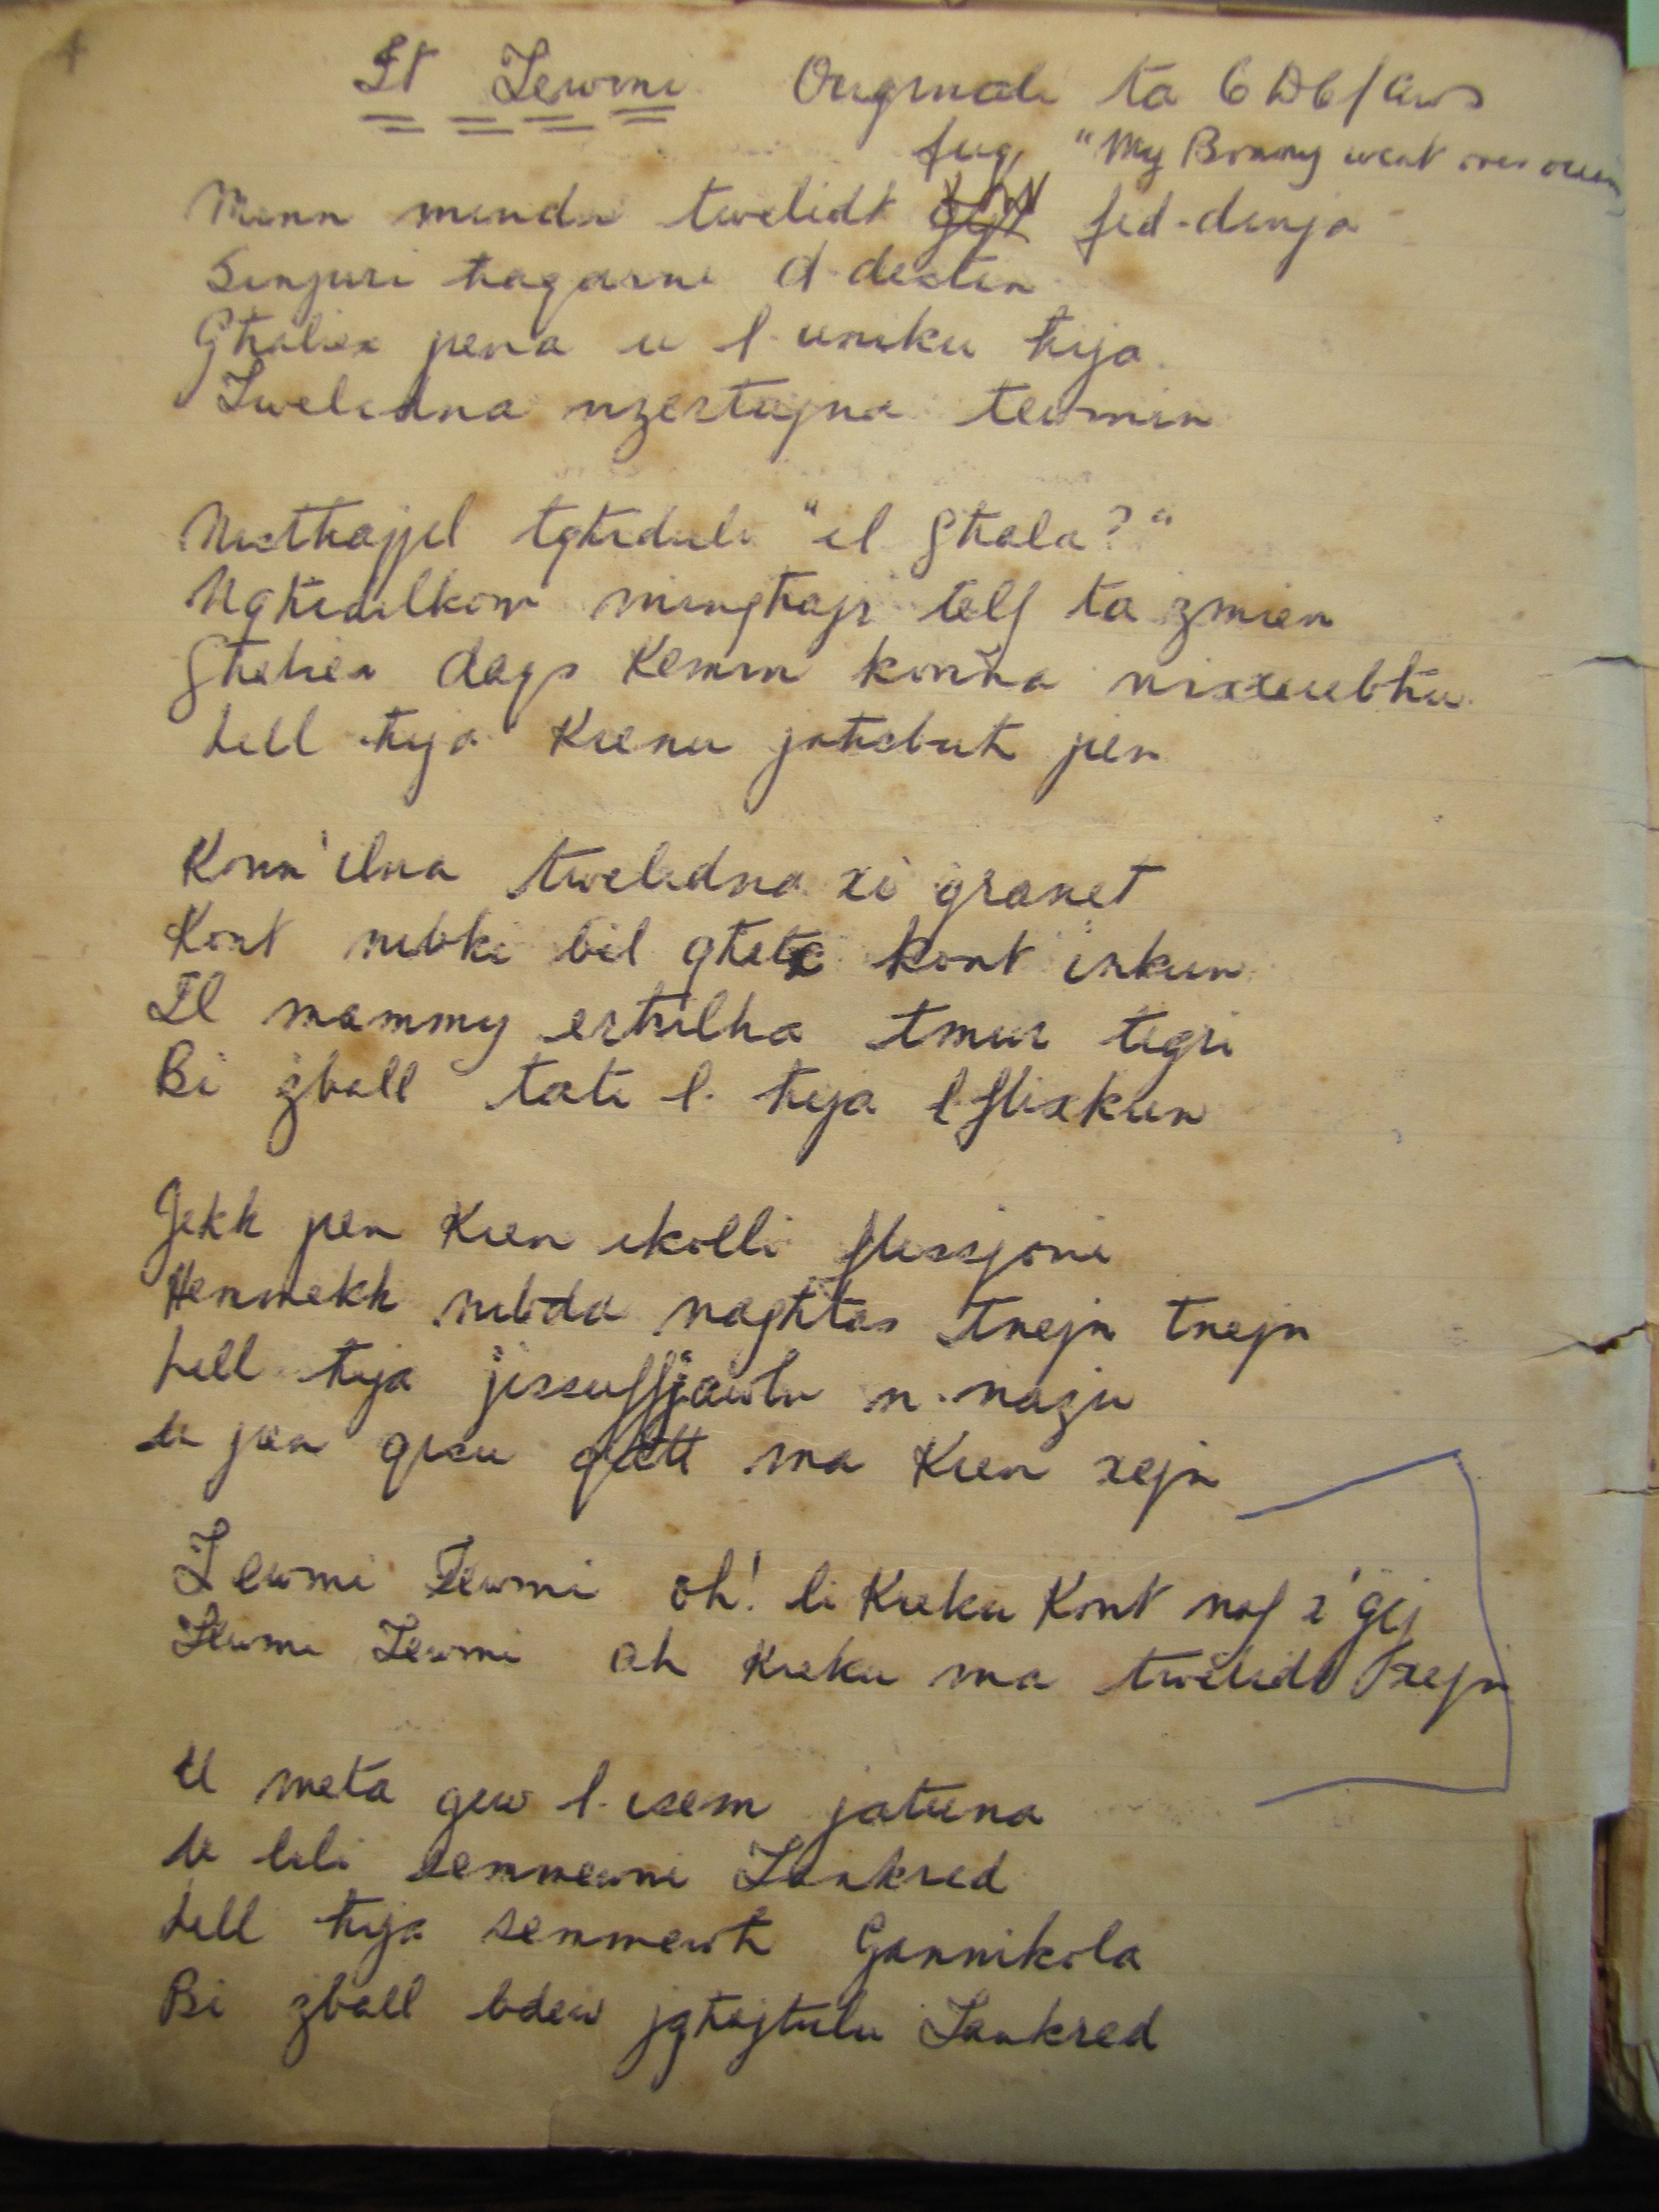 4
It Tewmi Originali ta
fuq "My Bonny went over
Minn mindu twelidt fid-dinja
Sinjuri haqarni d-destin
Ghaliex jena u l-uniku hija
Twelidna nzertajna tewmin
Nisthajjel tghiduli "il Ghala?"
Nghidilkom minghajr telf ta zmien
Ghaliex daqs kemm konna nixxiebhu
Lill hija kienu jahsbuh jien
Konn'ilna twelidna xi granet
Kont nibki bil ghatx kont inkun
Il mammy ersqilha tmur tigri
Bi zball tati l-hija l flixkun
Jekk jien kien ikolli flissjoni
Hemmekk nibda naghtas tnejn tnejn
Lill hija jissuffjawlu n-nazu
U jien qisu qatt ma kien xejn
Tewmi Tewmi oh! li kieku kont naf x'gej
Tewmi Tewmi ah kieku ma twelidt xejn
U meta giew l-isem jatuna
U lili semmewni Tankred
Lill hija semmewh Gannikola
Bi zball bdew jghajtulu Tankred